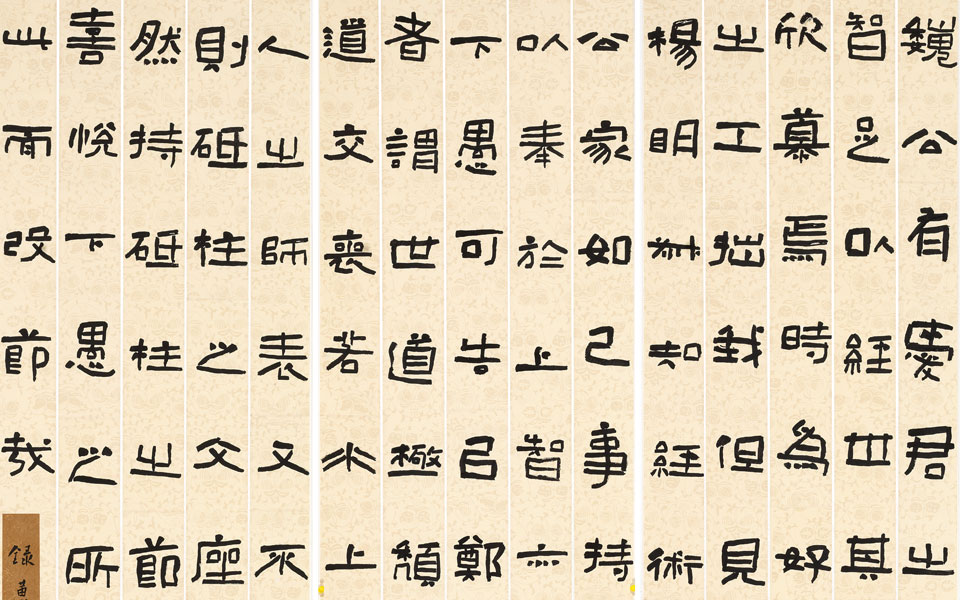 魏公有愛君之
智足以經世其
欣慕焉時為好
之工拙我但見
楊明叔知經術
公家如己事持
以奉於上智亦
下愚可告以鄭
者謂世道極頹
道交喪若水上
人之師表又不
則砥柱之文座
然持砥柱之節
喜悅下愚之所
此而改節哉
錄黃